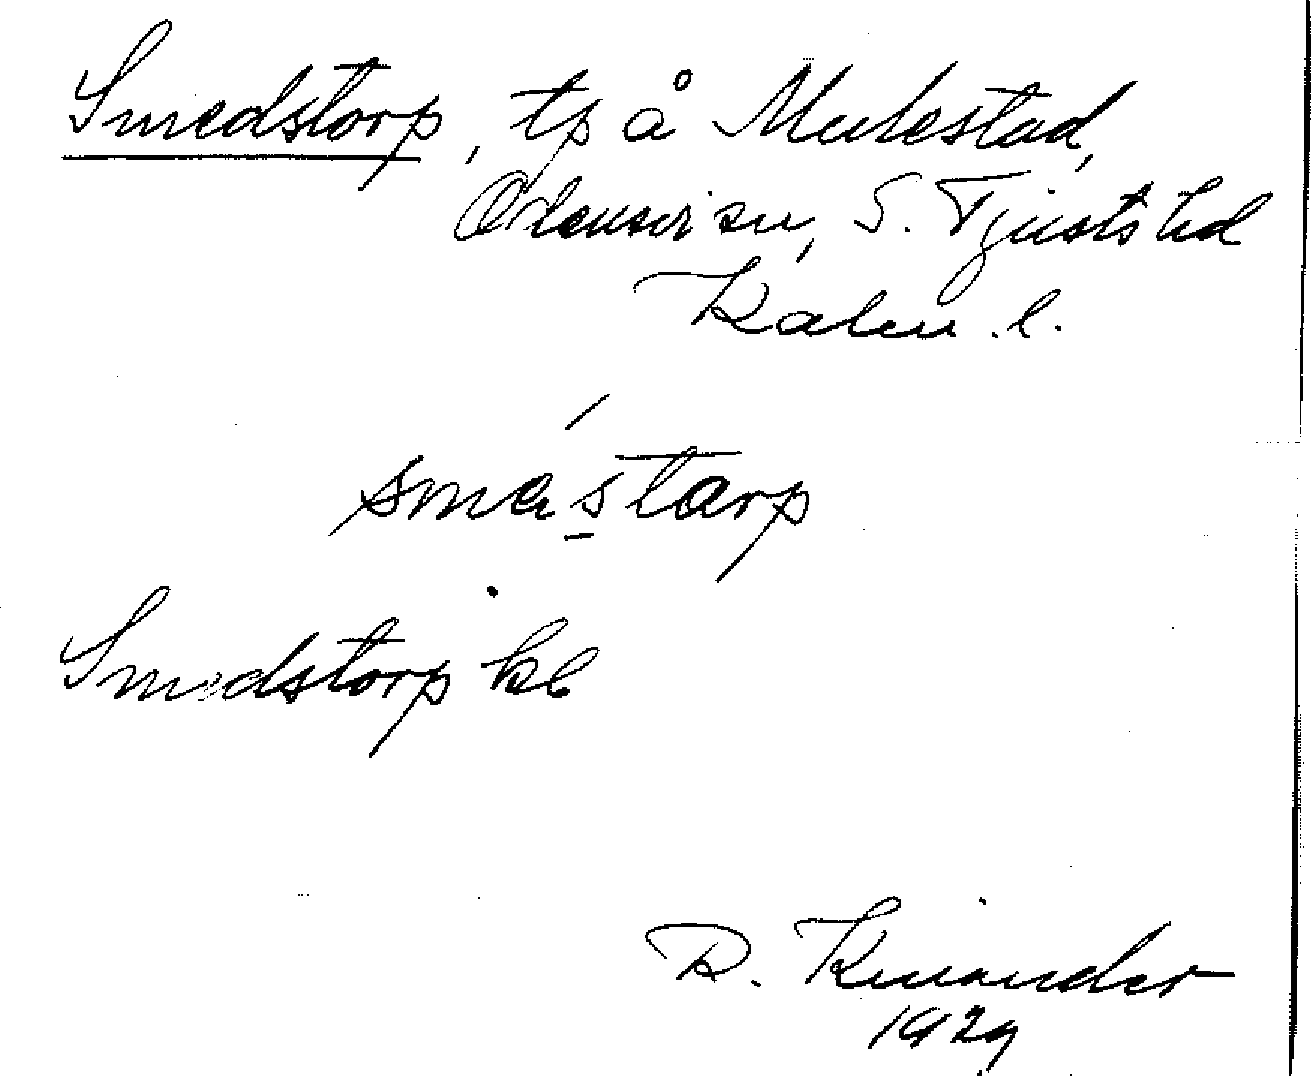 Smedstorp, tp å Mulestad,
Odensvi sn, S. Tjusts hd
Kalm. l.
sme_starp
Smedstorp kb
R. Kinander
1929